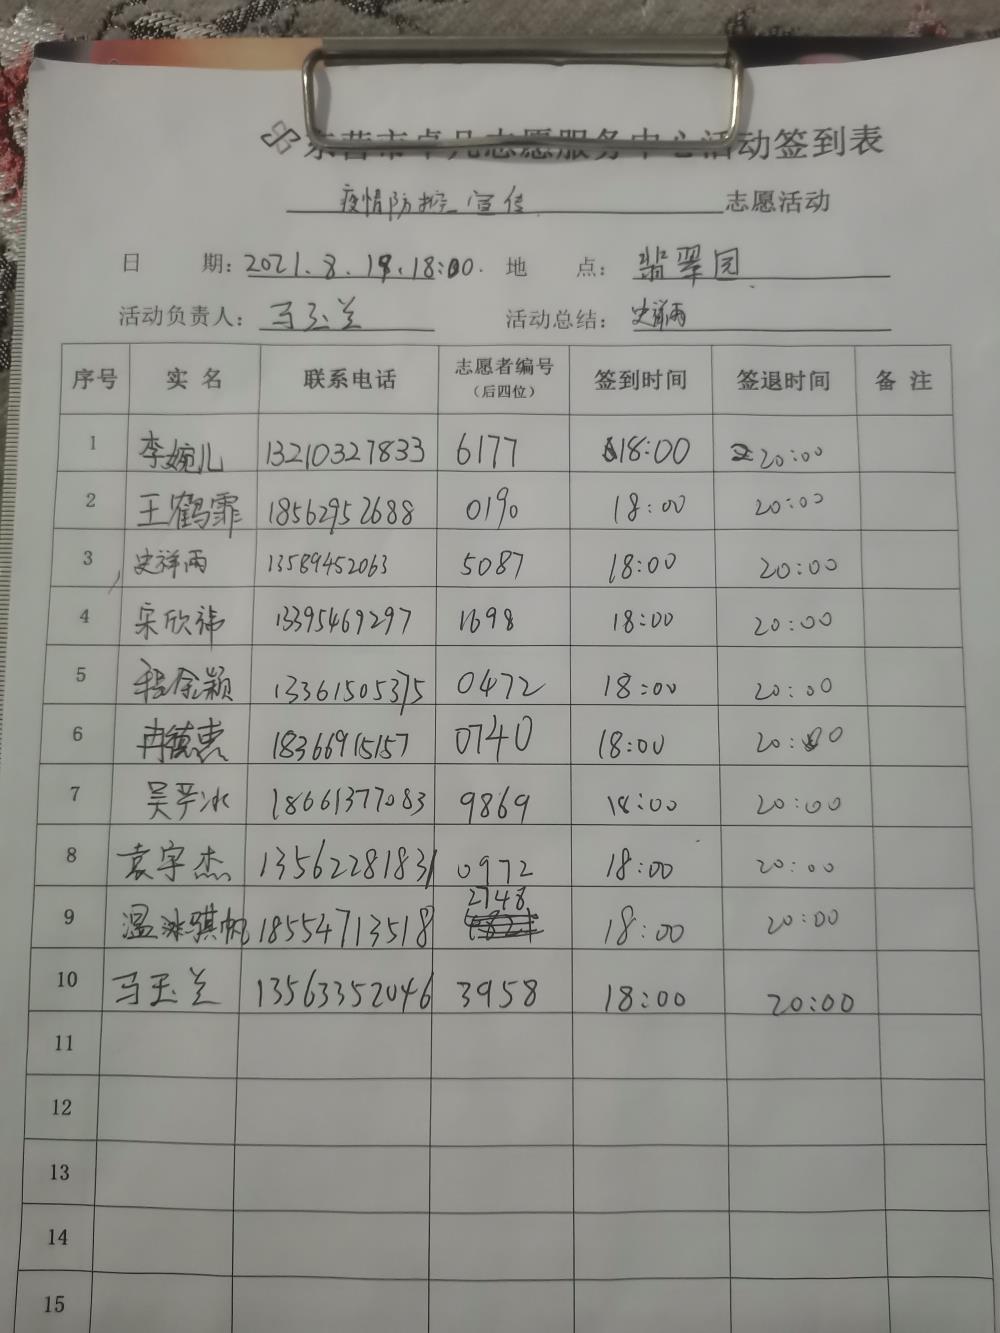 东营市卓凡志愿服务中心活动签到表
疫情防控宣传 志愿活动
日 期: 2021.8.19.18:00. 地 点: 翡翠园
活动负责人: 马玉兰 活动总结: 史祥雨
序号 实名 联系电话 志愿者编号(后四位) 签到时间 签退时间 备注
1 李婉儿 13210327833 6177 18:00 20:00
2 王鹤霏 18562952688 0190 18:00 20:00
3 史祥雨 13589452063 5087 18:00 20:00
4 宋欣祎 13395469297 1698 18:00 20:00
5 程金颖 13361505375 0472 18:00 20:00
6 冉德惠 18366915157 0740 18:00 20:00
7 吴彦冰 18661377083 9869 18:00 20:00
8 袁宇杰 13562281831 0972 18:00 20:00
9 温冰骐帆 18554713518 2748 18:00 20:00
10 马玉兰 13563352046 3958 18:00 20:00
11
12
13
14
15